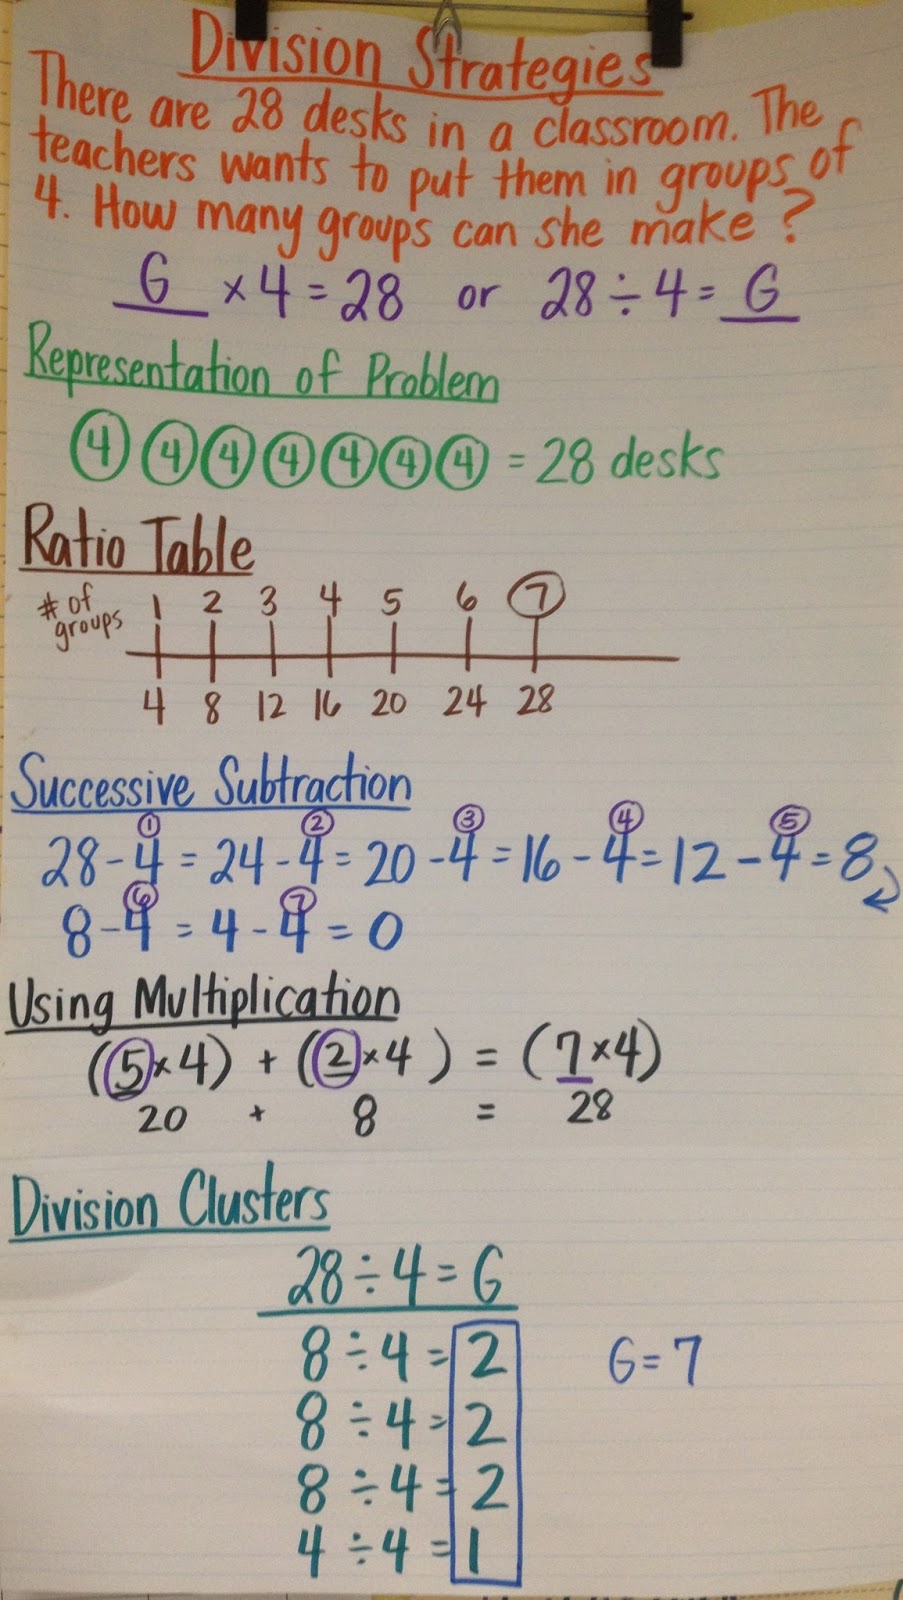 Division Strategies
There are 28 desks in a classroom. The
teachers wants to put them in groups of
4. How many groups can she make?
G × 4 = 28 or 28 ÷ 4 = G
Representation of Problem
4 4 4 4 4 4 4 = 28 desks
Ratio Table
# of groups 1 2 3 4 5 6 7
4 8 12 16 20 24 28
Successive Subtraction
1 2 3 4 5
28 - 4 = 24 - 4 = 20 - 4 = 16 - 4 = 12 - 4 = 8
6 7
8 - 4 = 4 - 4 = 0
Using Multiplication
(5 × 4) + (2 × 4) = (7 × 4)
20 + 8 = 28
Division Clusters
28 ÷ 4 = G
8 ÷ 4 = 2 G = 7
8 ÷ 4 = 2
8 ÷ 4 = 2
4 ÷ 4 = 1